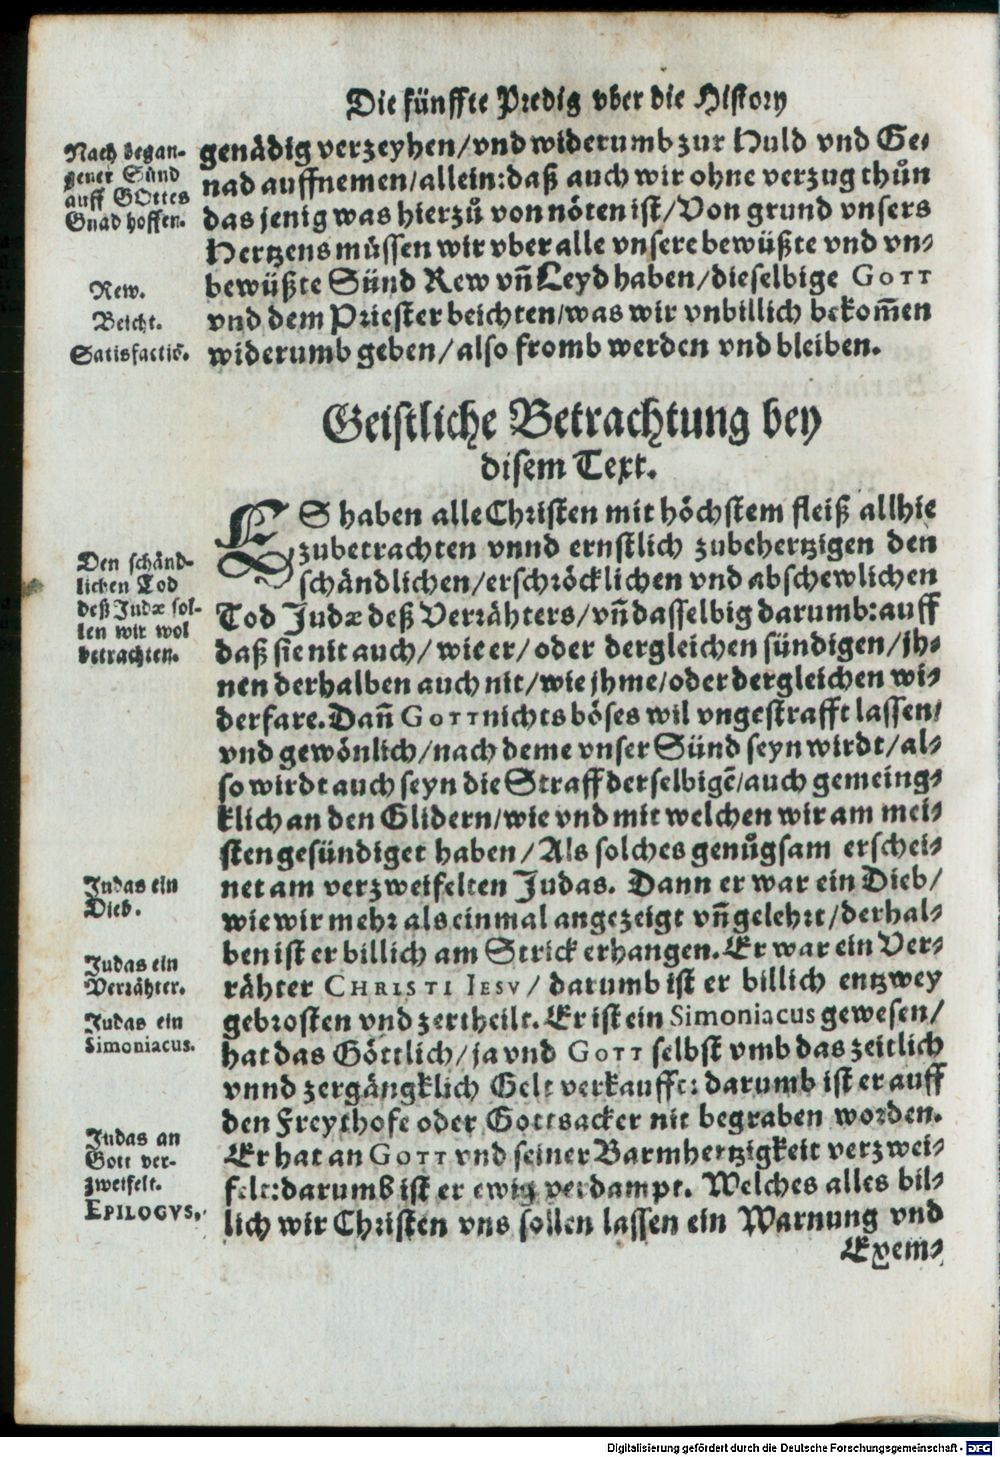 Die fünffte Predig vber die History
Nach began-
gener Sünd
auff GOttes
Gnad hoffen.
Rew.
Beicht.
Satisfactiõ.
genädig verzeyhen/vnd widerumb zur Huld vnd Ge-
nad auffnemen/allein: daß auch wir ohne verzug thůn
das jenig was hierzů von nöten ist/Von grund vnsers
Hertzens müssen wir vber alle vnsere bewüßte vnd vn-
bewüßte Sünd Rew vñ Leyd haben/dieselbige GOTT
vnd dem Priester beichten/was wir vnbillich bekom̃en
widerumb geben/also fromb werden vnd bleiben.
Geistliche Betrachtung bey
disem Text.
Den schänd-
lichen Tod
deß Judæ sol-
len wir wol
betrachten.
ES haben alle Christen mit höchstem fleiß allhie
zubetrachten vnnd ernstlich zubehertzigen den
schändlichen/erschröcklichen vnd abschewlichen
Tod Judæ deß Verrähters/vñ dasselbig darumb: auff
daß sie nit auch/wie er/oder dergleichen sündigen/jh-
nen derhalben auch nit/wie jhme/oder dergleichen wi-
derfare. Dañ GOTT nichts böses wil vngestrafft lassen/
vnd gewönlich/nach deme vnser Sünd seyn wirdt/al-
so wirdt auch seyn die Straff derselbigẽ/auch gemeing-
klich an den Glidern/wie vnd mit welchen wir am mei-
sten gesündiget haben/Als solches genůgsam erschei-
net am verzweifelten Judas. Dann er war ein Dieb/
wie wir mehr als einmal angezeigt vñ gelehrt/derhal-
ben ist er billich am Strick erhangen. Er war ein Ver-
rähter CHRISTI IESV/ darumb ist er billich entzwey
gebrosten vnd zertheilt. Er ist ein Simoniacus gewesen/
hat das Göttlich/ja vnd GOTT selbst vmb das zeitlich
vnnd zergängklich Gelt verkaufft: darumb ist er auff
den Freythofe oder Gottsacker nit begraben worden.
Er hat an GOTT vnd seiner Barmhertzigkeit verzwei-
felt: darumb ist er ewig verdampt. Welches alles bil-
lich wir Christen vns sollen lassen ein Warnung vnd
Judas ein
Dieb.
Judas ein
Verrähter.
Judas ein
Simoniacus.
Judas an
Gott ver-
zweifelt.
EPILOGVS.
Exem-
Digitalisierung gefördert durch die Deutsche Forschungsgemeinschaft - DFG